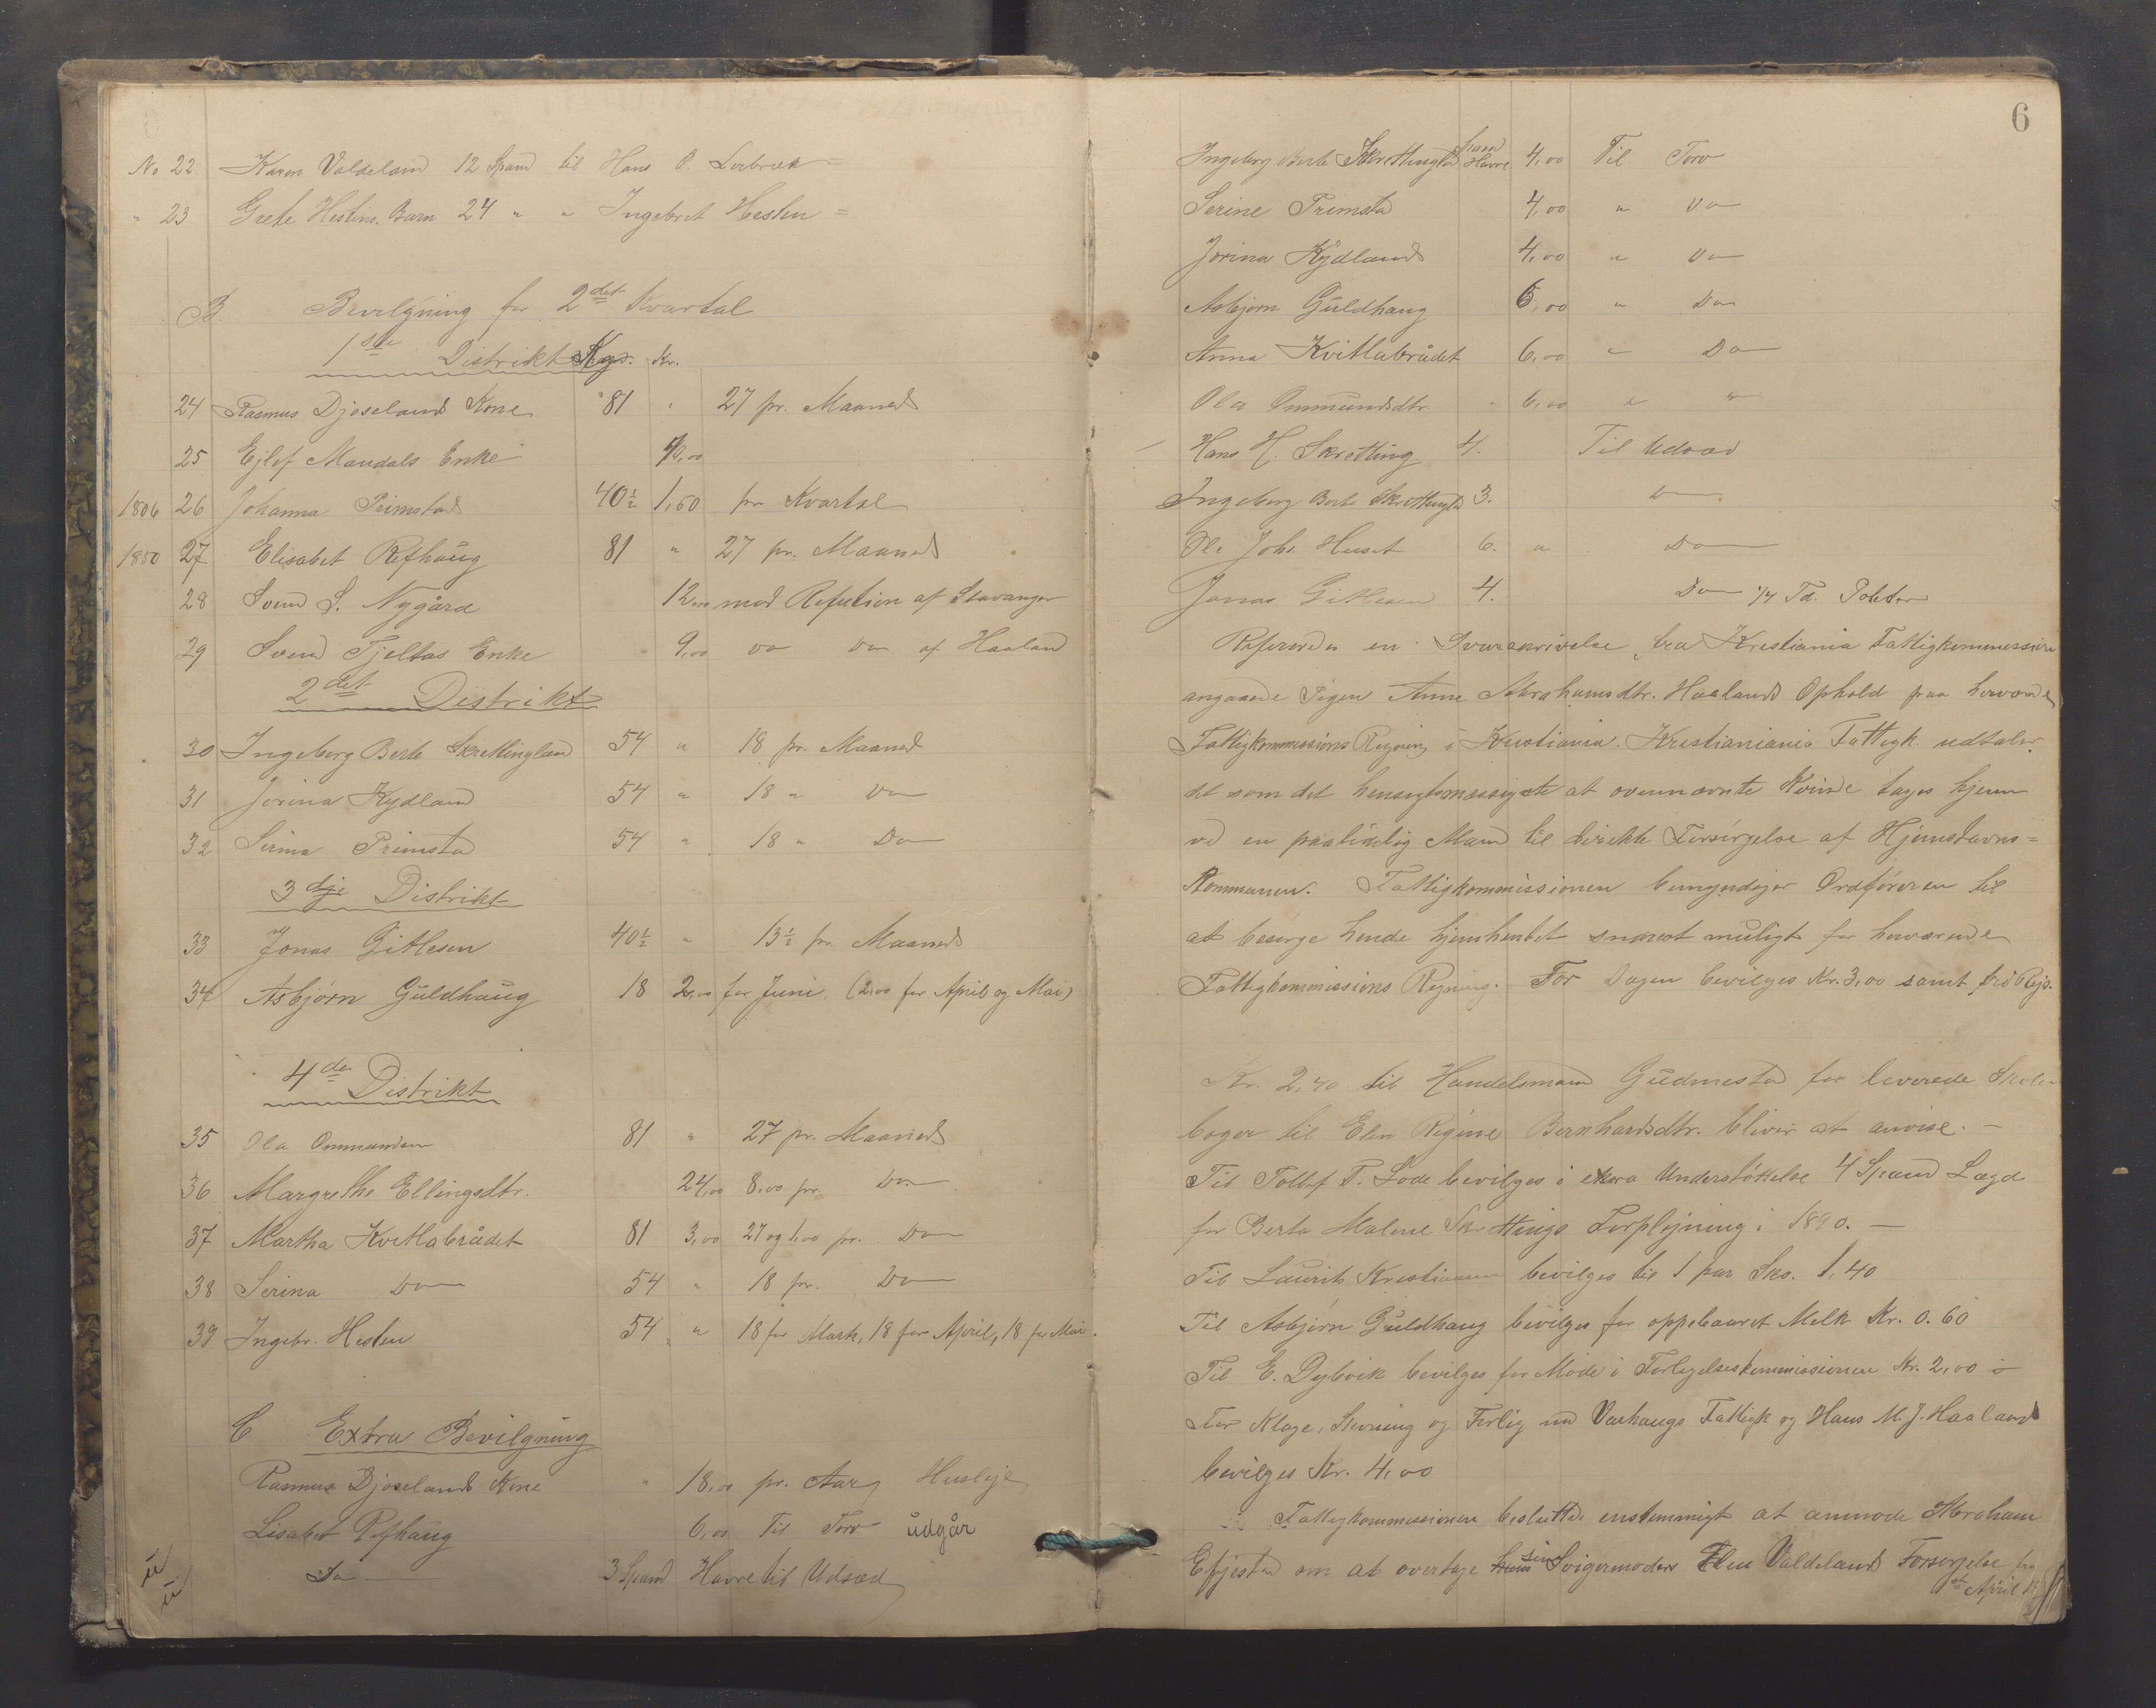 No 22. Karen Valdeland 12 Spand til Hans O. Lerbrek =
" 23 Grete Hestens Barn 24 " " Ingebret Hesten =
B. Bevilgning for 2det Kvartal
1ste Distrikt Kgr. Kr.
24 Rasmus Djøselands Kone 81 " 27 pr. Maaned
25 Ejlef Maudals Enke
1806 26 Johanna Primstad 40½ 1,60 pr Kvartal
1850 27 Elisabet Refhaug 81 " 27 pr. Maaned
28 Svend S. Nygård 12,00 mod Refution af Stavanger
29 Svend Tjeltas Enke 9,00 do Do af Haaland
2det Distrikt
30 Ingeborg Berte Skrettingland 54 " 18 pr. Maaned
31 Jorina Kydland 54 " 18 " Do
32 Serina Primsta 54 " 18 " Do
3dje Distrikt
33 Jonas Gitlesen 40½ " 13½ pr. Maaned
34 Asbjørn Guldhaug 18 2,00 for Juni, (2,00 for April og Mai)
4de Distrikt
35 Ola Ommundsen 81 " 27 pr. Maaned
36 Margrethe Ellingsdtr. 24,00 8,00 pr. Do
37 Martha Kvitlabrådet 81 3,00 27 og 1,00 pr. Do
38 Serina Do 54 " 18 pr. Do
39 Ingebr. Hesten 54 " 18 for Marts, 18 for April, 18 for Mai.
C Extra Bevilgning
Rasmus Djøselands Kone " 18,00 pr. Aar, Husleje
Lisabet Refhaug 6,00 Til Torv udgår
Do 3 Spand Havre til Udsæd
6
Ingeborg Berte Skrettingld Spand Havre 4,00 Til Torv
Serine Primsta 4,00 " Do
Jorina Kydland 4,00 " Do
Asbjørn Guldhaug 6,00 " Do
Anna Kvitlabrådet 6,00 " Do
Ola Ommundsdtr. " 6,00 " "
Hans H. Skretting 4. Til Udsæd
Ingeborg Berte Skrettingld 3. Do
Ole Johs Huset 6. " Do
Jonas Gitlesen 4. Do 1/4 Td. Poteter
Refereredes en Svarskrivelse fra Kristiania Fattigkommission
angaaende Pigen Anne Abrahamsdtr. Haalands Ophold paa herværende
Fattigkommissions Regning i Kristiania. Kristianiania Fattigk. udtaler
det som det hensigtsmæssigste at ovennævnte Kvinde tages hjem
ved en paalidelig Mand til direkte Forsørgelse af Hjemstavns=
Kommunen. Fattigkommissionen bemyndiger Ordføreren til
at besørge hende hjemhentet snarest muligt for herværende
Fattigkommissions Regning. For Dagen bevilges Kr. 3,00 samt fri Rejs.
Kr. 2,40 til Handelsmand Gudmestad for leverede Skole
bøger til Elen Regine Bernhardsdtr. bliver at anvise. –
Til Tollef T. Lode bevilges i extra Understøttelse 4 Spand Lægd
for Berta Malene Skrettings Forplejning i 1890. –
Til Laurits Kristiansen bevilges til 1 par Sko. 1,40
Til Asbjørn Guldhaug bevilges for oppebaaret Melk Kr. 0.60
Til E. Dybvik bevilges for Møde i Forligelseskommissionen Kr. 2,00
For Klage, Stevning og Forlig med Varhaugs Fattigk og Hans M. J. Haaland
bevilges Kr. 4,00
Fattigkommissionen besluttede enstemmigt at anmode Abraham
Efjestad om at overtage hans sin Svigermoders Elen Valdelands Forsørgelse fra
April